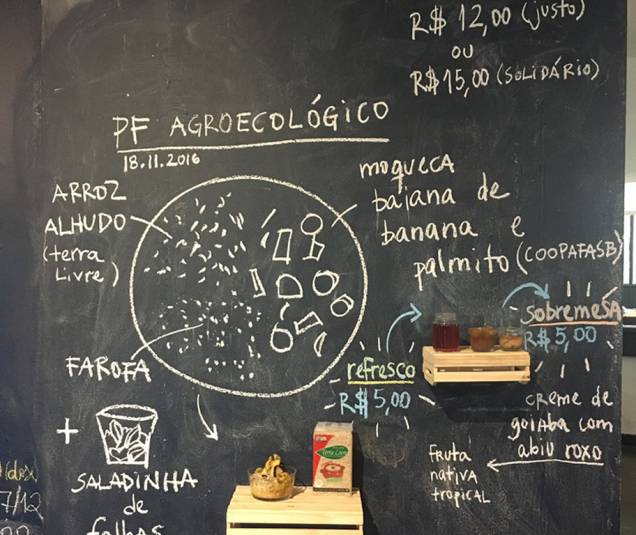 R$ 12,00 (justo)
ou
R$ 15,00 (SOLIDÁRIO)
PF AGROECOLÓGICO
18.11.2016
ARROZ
ALHUDO
(terra
Livre)
moqueca
bajana de
banana e
palmito (COOPAFASB)
FAROFA
refresco
R$ 5,00
sobremeSA
R$ 5,00
creme de
goiaba com
abiu roxo
fruta
nativa
tropical
+
SALADINHA
de
folhas
7/12